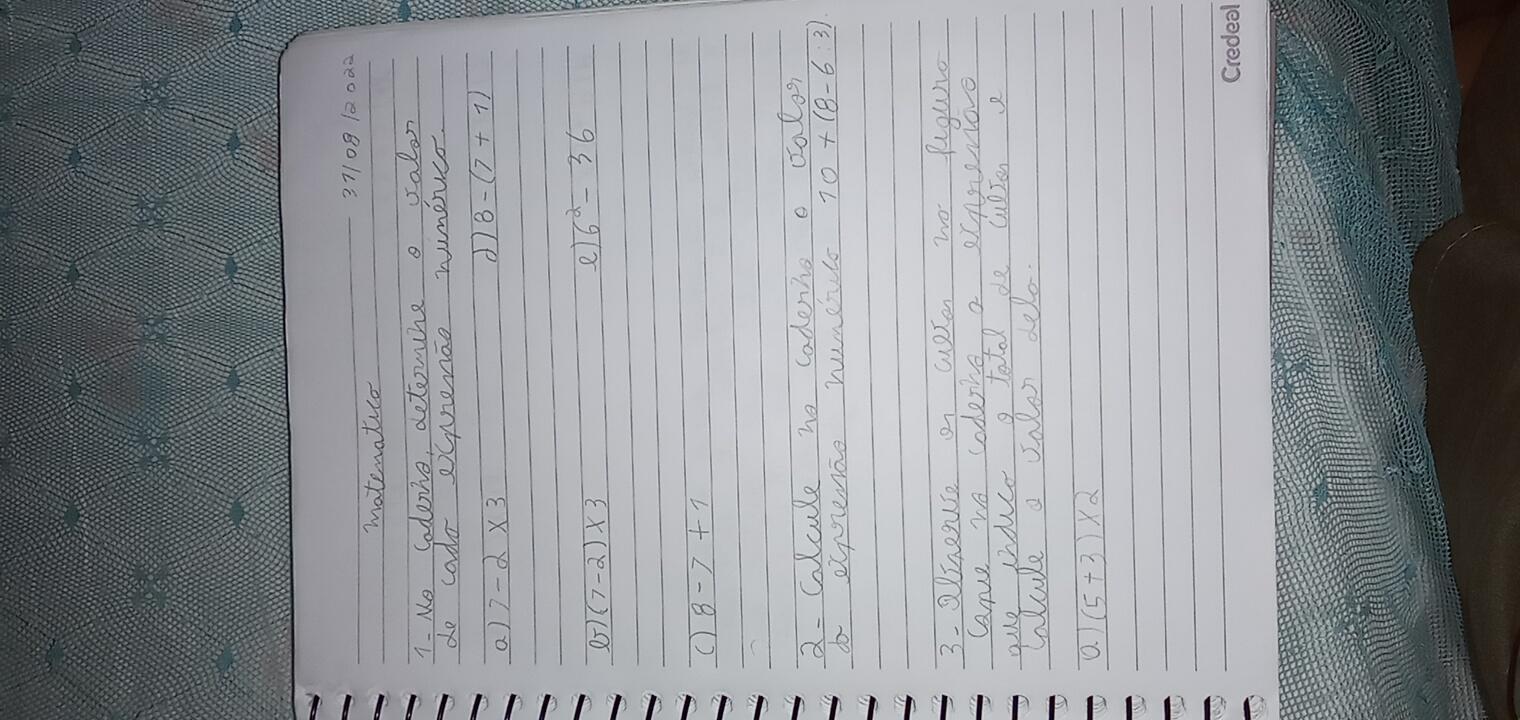 31/08/2022
matematica
1- No caderno, determine o valor
de cada expressão numérica.
a) 7 - 2 x 3 d) 8 - (7 + 1)
b) (7 - 2) x 3 e) 6² - 36
c) 8 - 7 + 1
2- Calcule no caderno o valor
da expressão numérica 10 + (8 - 6 : 3).
3- Observe os cubos na figura
Copie no caderno a expressão
que indica o total de cubos e
Calcule o valor dela.
a) (5 + 3) x 2
Credeal